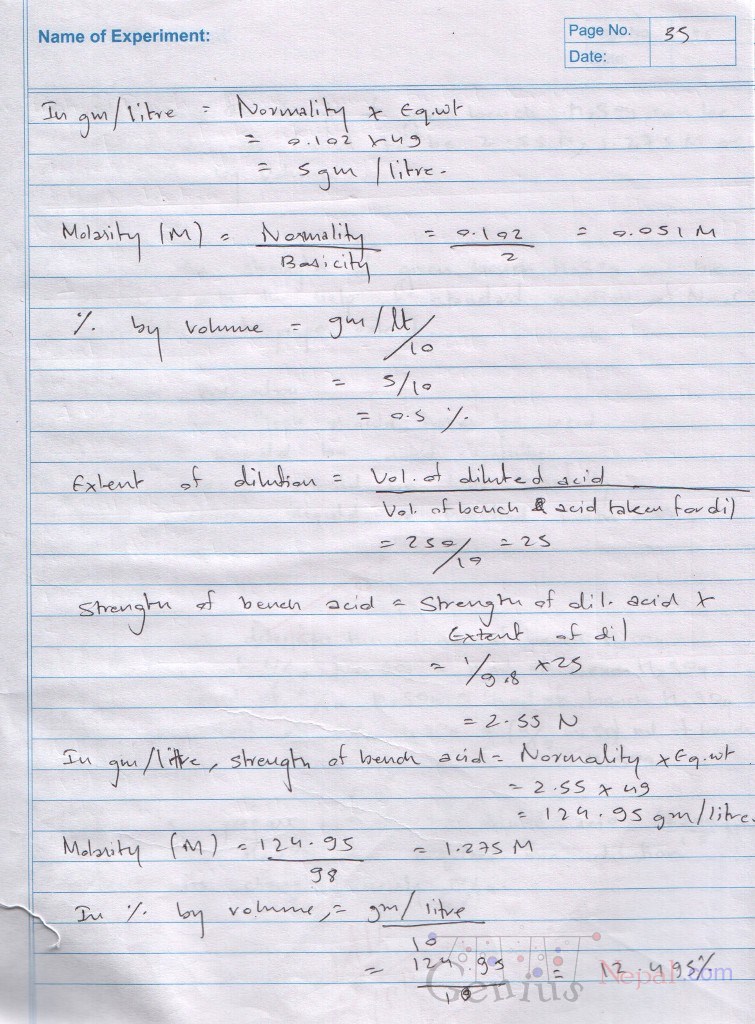 Name of Experiment:
Page No. 35
Date:
In gm/litre = Normality x Eq.wt
= 0.102 x 49
= 5 gm / litre.
Molarity (M) = Normality / Basicity = 0.102 / 2 = 0.051 M
% by volume = gm / lt / 10
= 5/10
= 0.5 %
Extent of dilution = Vol. of diluted acid
Vol. of bench acid taken for dil
= 250/10 = 25
Strength of bench acid = Strength of dil. acid x
Extent of dil
= 1/9.8 x 25
= 2.55 N
In gm/litre, strength of bench acid = Normality x Eq.wt
= 2.55 x 49
= 124.95 gm/litre.
Molarity (M) = 124.95 / 98 = 1.275 M
In % by volume, = gm/ litre
10
= 124.95 / 10 = 12.495%
Genius Nepal.com